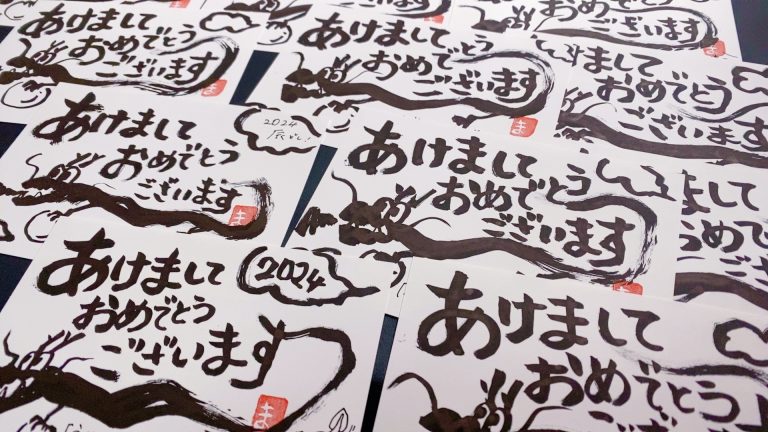 あけまして
おめでとう
ございます
あけまして
おめでとう
ございます
ま
おめでとう
ございます
ま
あけまして
おめでとう
ございます
ま
あけまして
おめでとう
ございます
ま
まして
おめでとう
ございます
2024
あけまして
おめでとう
ございます
ま
あけまして
おめでとう
ございます
めでとう
ざいます
2024
あけまして
おめでとう
ございます
ま
あけまして
おめでとう